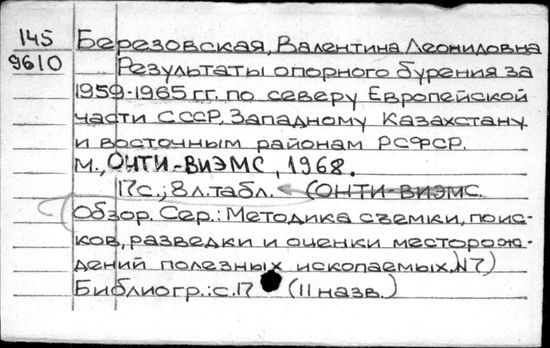 145
9610
Березовская, Валентина Леонидовна
Результаты опорного бурения за
1959-1965 гг. по северу Европейской
части СССР, Западному Казахстану
и восточным районам РСФСР.
М., ОНТИ-ВИЭМС, 1968.
17с.; 8 л.табл. (ОНТИ-ВИЭМС.
Обзор. Сер.: Методика съемки, поис-
ков, разведки и оценки месторож-
дений полезных ископаемых, №7)
Библиогр.: с.17 (11 назв.)